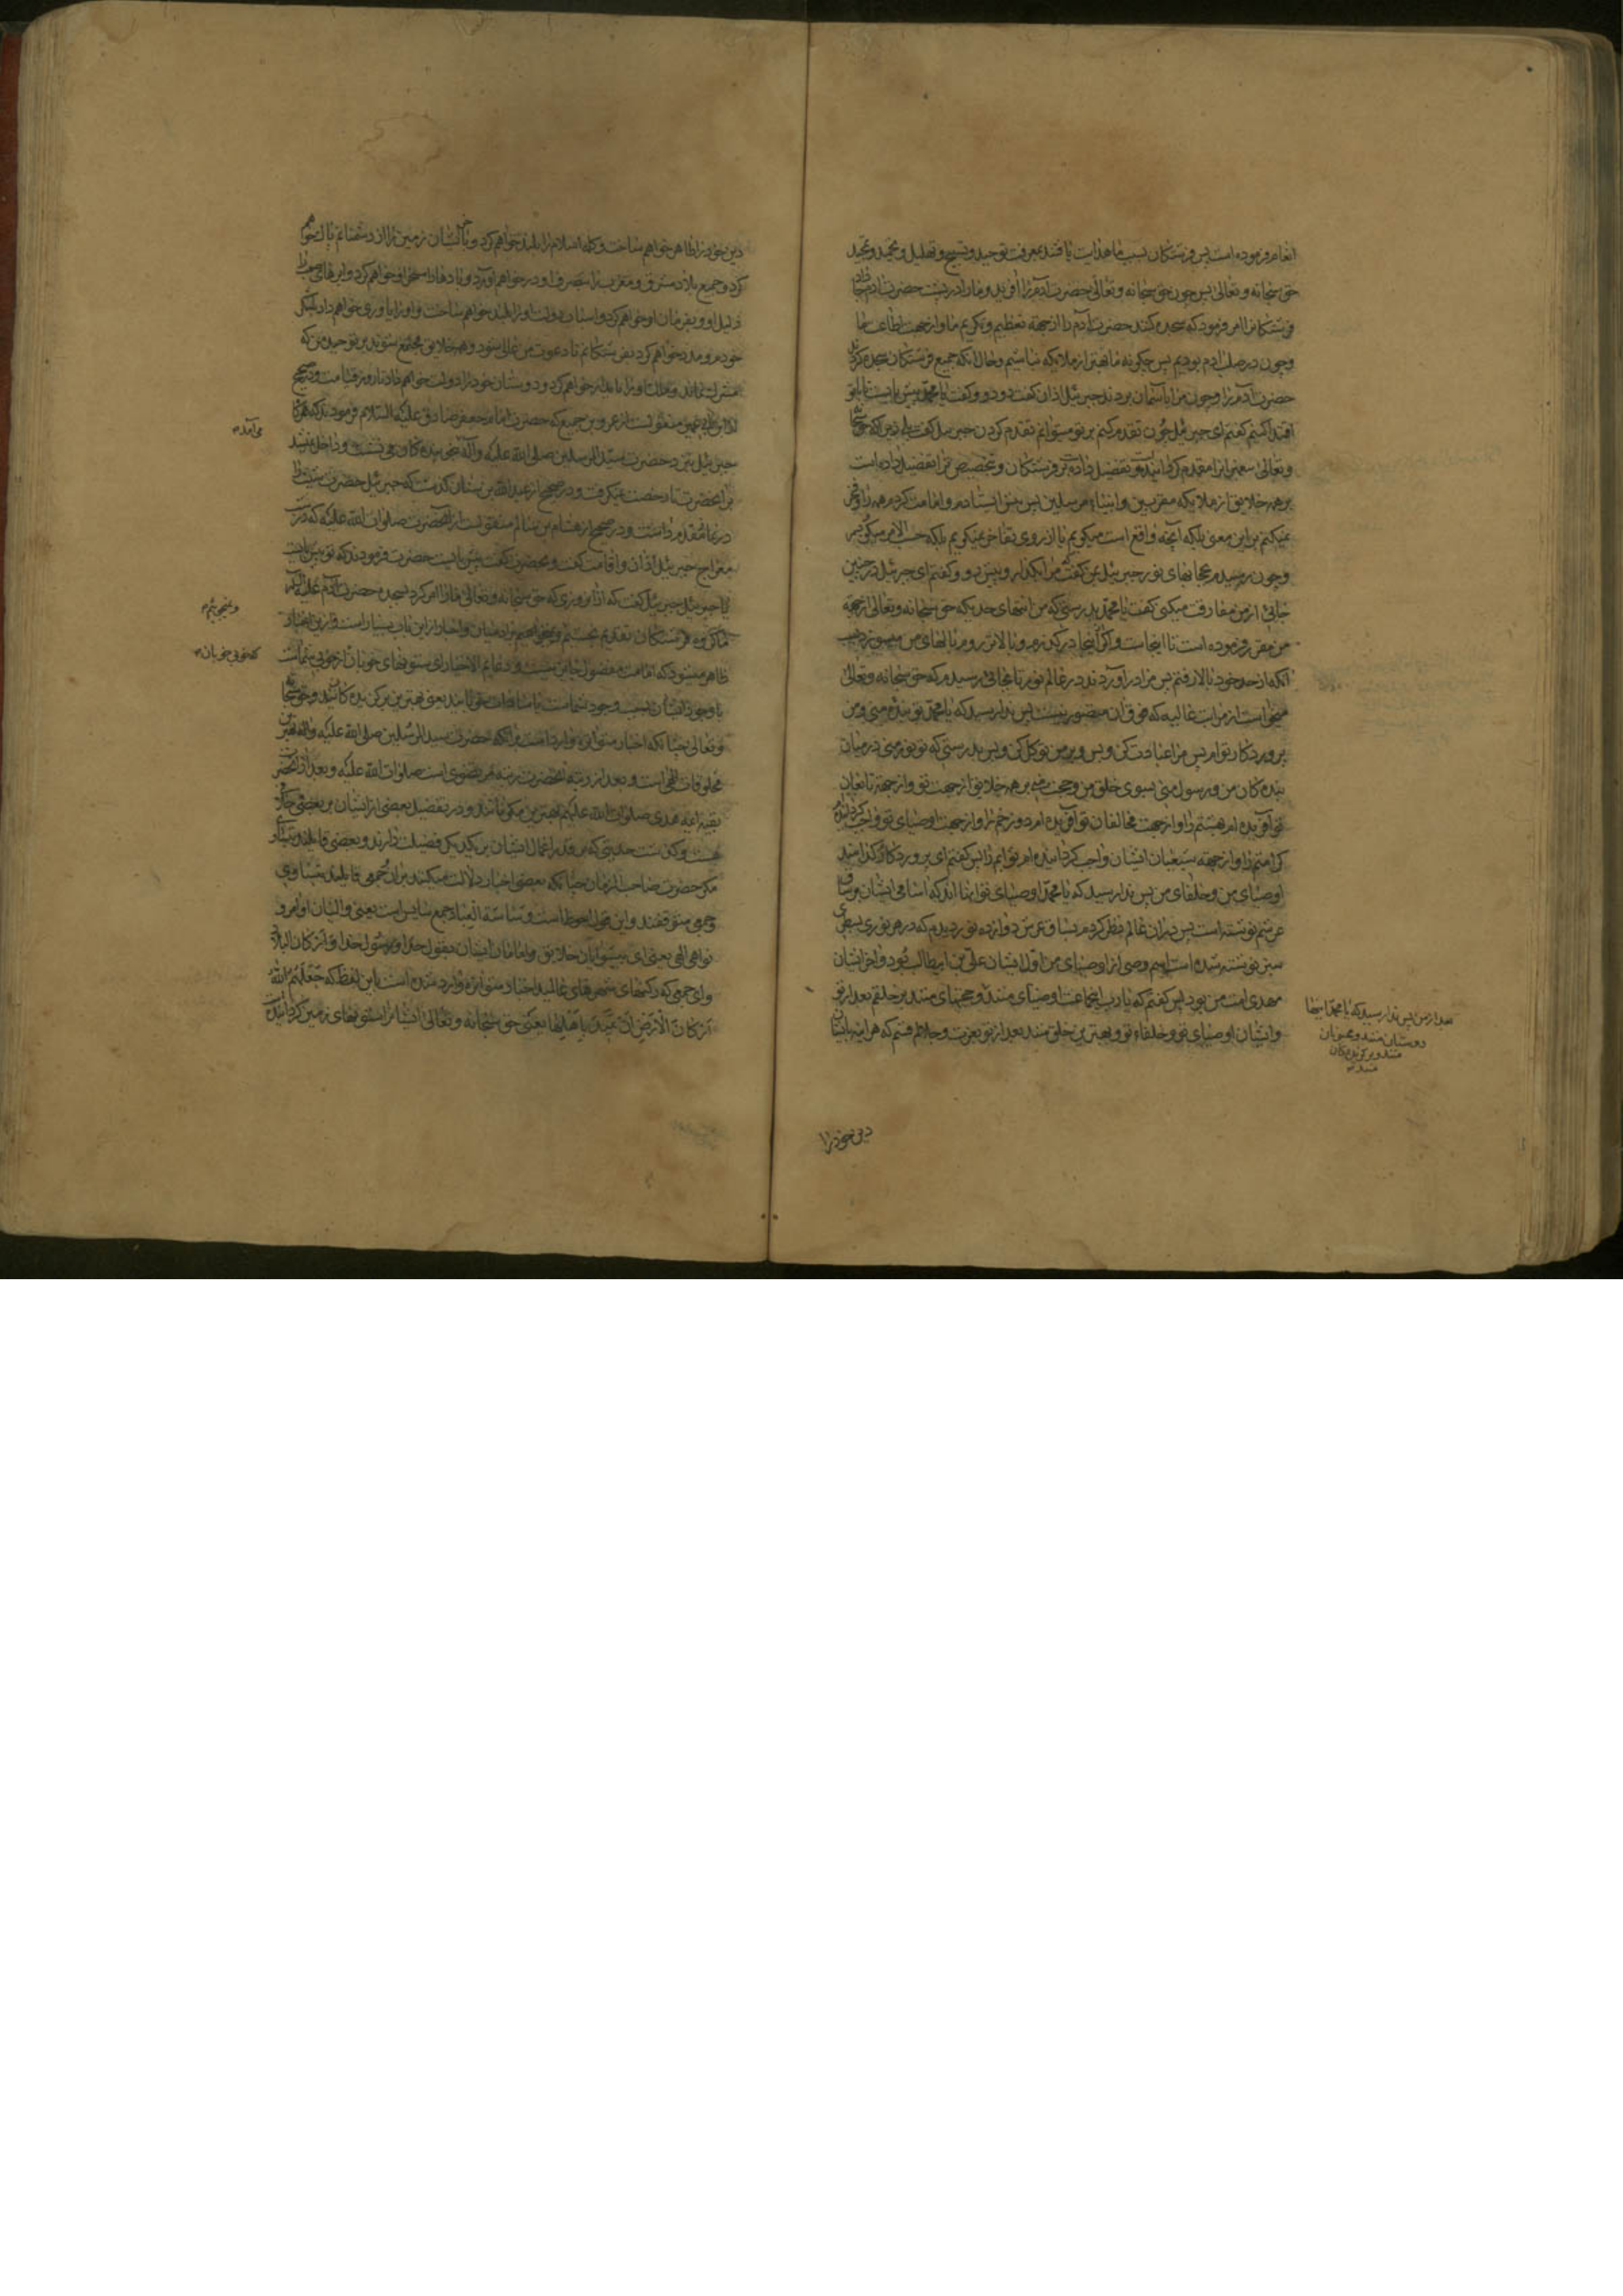 انعام فرموده است پس فرشتكان بسبب ما هدايت يافتند بمعرفت توحيد و تسبيح و تهليل و تحميد و تمجيد
حق سبحانه و تعالى پس چون حق سبحانه و تعالى حضرت آدم را آفريد و ما را در پشت حضرت آدم جا داد
فرشتكان را امر فرمود كه سجده كنند حضرت آدم را از جهة تعظيم و تكريم ما و از جهت اطاعت خدا
و چون در صلب آدم بوديم پس چكونه ما بهتر از ملائكه نباشيم و حال آنكه جميع فرشتكان سجده كردند
حضرت آدم را و چون مرا باسمان بردند جبرئيل اذان كفت دو دو و كفت يا محمد پيش بايست تا بتو
اقتدا كنيم كفتم اى جبرئيل چون تقدم كنم بر تو ميتوانم تقدم كردن جبرئيل كفت بلى زيرا كه حق سبحانه
و تعالى پيغمبران را مقدم كردانيده و تفضيل داده بر فرشتكان و بتخصيص ترا تفضيل داده است
بر همه خلايق از ملائكه مقربين و انبياء مرسلين پس پيش ايستادم و امامت كردم همه را و فخر
نميكنم بر اين معنى بلكه آنچه واقع است ميكويم يا از روى تفاخر نميكويم بلكه حسب الامر ميكويم
و چون رسيدم بحجابهاى نور جبرئيل بمن كفت كه مرا بكذار و پيش رو و كفتم اى جبرئيل در چنين
جايى از من مفارقت ميكنى كفت يا محمد بدرستى كه من انتهاى حديكه حق سبحانه و تعالى از جهة
من مقرر فرموده است تا اينجاست و اكر از اينجا در كذرم و بالاتر روم بالهاى من ميسوزد بسبب
آنكه از حد خود بالا رفتم پس مرا در آوردند در عالم نور تا بجائى رسيدم كه حق سبحانه و تعالى
ميخواست از مراتب عاليه كه فوق آن متصور نيست پس ندا رسيد كه يا محمد تو بنده منى و من
پروردكار توام پس مرا عبادت كن و بس و بر من توكل كن و بس بدرستى كه تو نور منى در ميان
بندكان من و رسول منى بسوى خلق من و حجت منى بر همه خلايق از جهت تو و از جهة تابعان
تو آفريده ام بهشتم را و از جهت مخالفان تو آفريده ام دوزخم را و از جهت اوصياى تو واجب كردانيده
كرامتم را و از جهة شيعيان ايشان واجب كردانيده ام ثوابم را پس كفتم اى پروردكار كدامند
اوصياى من و خلفاى من پس ندا رسيد كه يا محمد اوصياى تو آنها اند كه اسامى ايشان بر ساق
عرشم نوشته است پس در ان عالم نظر كردم بساق عرش دوازده نور ديدم كه در هر نورى سطرى
سبز نوشته شده است اسم وصى از اوصياى من اول ايشان على بن ابيطالب بود و آخر ايشان
مهدى امت من بود پس كفتم كه يا رب اينجماعت اوصياى منند و حجتهاى منند بر خلقم بعد از تو
و ايشان اوصياى تو و خلفاء تو و بهترين خلق منند بعد از تو بعزت و جلالم قسم كه هر اينه بايشان
بعد از من پس ندا رسيد كه يا محمد اينها
دوستان منند و محبوبان
منند و بركزيدكان
منند
دين خود را
دين خود را ظاهر خواهم ساخت و كلمه اسلام را بلند خواهم كرد و بآخر ايشان زمين را از دشمنانم پاك خواهم
كرد و جميع بلاد مشرق و مغرب را بتصرف او در خواهم آورد و بادها را مسخر او خواهم كرد و ابرهاى صعب
ذليل او و بفرمان او خواهم كرد و اسباب دولت او را بلند خواهم ساخت و او را ياورى خواهم داد بلشكر
خودم و مدد خواهم كرد بفرشتكانم تا دعوت من عالى شود و همه خلايق مجتمع شوند بر توحيد من كه
مشرك نماند و ملك او را پاينده خواهم كرد و دوستان خود را دولت خواهم داد تا روز قيامت و در صحيح
منقولست از عمرو بن جميع كه حضرت امام جعفر صادق عليه السلام فرمودند كه هركاه
مى آمد
جبرئيل بنزد حضرت سيد المرسلين صلى الله عليه و آله بنحو بندكان مى نشست و داخل نميشد
بر آنحضرت تا رخصت نميكرفت و در صحيح از عبد الله بن سنان كذشت كه جبرئيل حضرت
در نماز مقدم داشت و در صحيح از هشام بن سالم منقولست از آنحضرت صلوات الله عليه كه در شب
معراج جبرئيل اذان و اقامت كفت و بحضرت كفت پيش بايست حضرت فرمودند كه تو پيش بايست
يا جبرئيل جبرئيل كفت كه از آنروزى كه حق سبحانه و تعالى ما را امر كرد بسجده حضرت آدم عليه السلام
و نميجوئيم
ما كروه فرشتكان تقديم نجستيم بر آدميان و اخبار از اين باب بسيار است و از اين اخبار
كه خوبى خوبان
ظاهر ميشود كه امامت مفضول جايز نيست و دعائم الاخيار اى ستونهاى خوبان از خوبى شماست
يا وجود ايشان بسبب وجود شماست
و تعالى چنانكه اخبار متواتره وارد است بر آنكه حضرت سيد المرسلين صلى الله عليه و آله بهترين
مخلوقات الهى است و بعد از رتبه آنحضرت رتبه مرتضوى است صلوات الله عليه و بعد از آنحضرت
بقيه ائمه هدى صلوات الله عليهم بهترين مكوناتند و در تفضيل بعضى از ايشان بر بعضى خلاف
هست و كم است حديثى كه قدر اعمال ايشان بر يكديكر فضيلت دارند و بعضى قايلند بتساوى
مكر حضرت صاحب الزمان چنانكه بعضى اخبار دلالت ميكند بر ان و جمعى قايلند بتساوى
و جمعى متوقفند و اين قول احوط است و ساسة العباد جمع سايس است يعنى واليان اوامر و
نواهى الهى يعنى اى پيشوايان خلايق و امامان ايشان بقول خدا و رسول خدا و اركان البلاد
و اى جمعى كه ركنهاى شهرهاى عالميد اخبار متواتره وارد شده است باين لفظ كه جعلهم الله
اركان الارض ان تميد باهلها يعنى حق سبحانه و تعالى ايشانرا ستونهاى زمين كردانيده